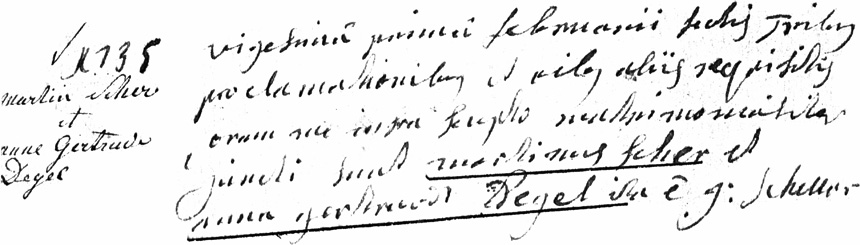 N 135
martin Scher
et
anne Gertrude
Degel
vigesimâ primâ februarii factis tribus
proclamationibus et aliis requisitis
coram me infra scripto matrimonialiter
juncti sunt martinus Scher et
anna gertrudis Degel ita ē g: Scheller